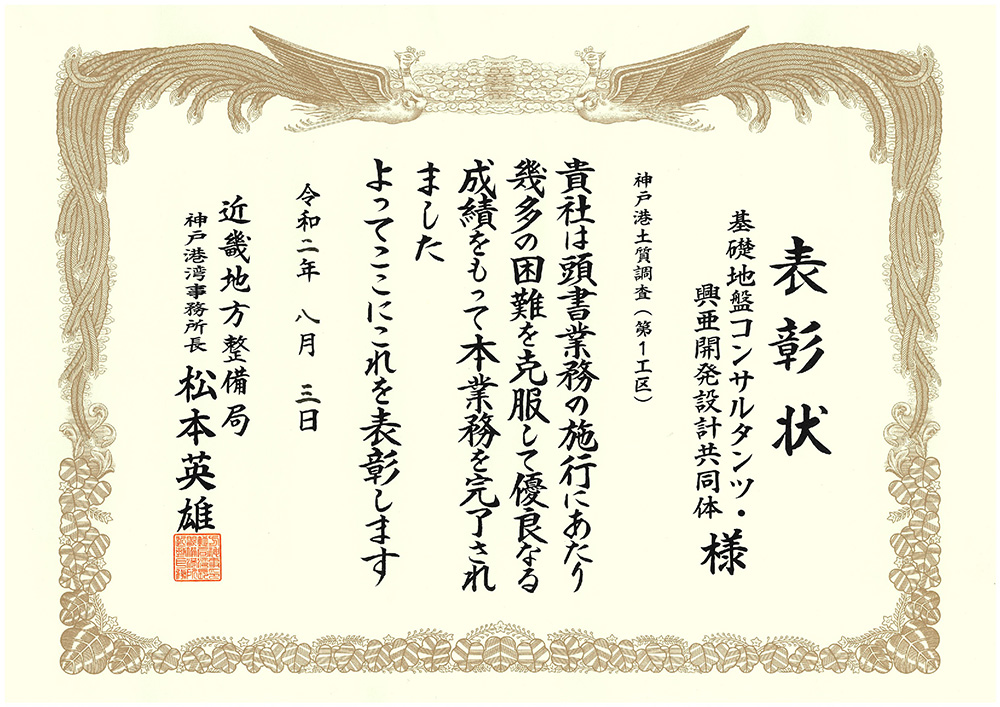 表彰状
基礎地盤コンサルタンツ・
興亜開発設計共同体 様
神戸港土質調査(第1工区)
貴社は頭書業務の施行にあたり
幾多の困難を克服して優良なる
成績をもって本業務を完了され
ました
よってここにこれを表彰します
令和二年 八月 三日
近畿地方整備局
神戸港湾事務所長 松本英雄